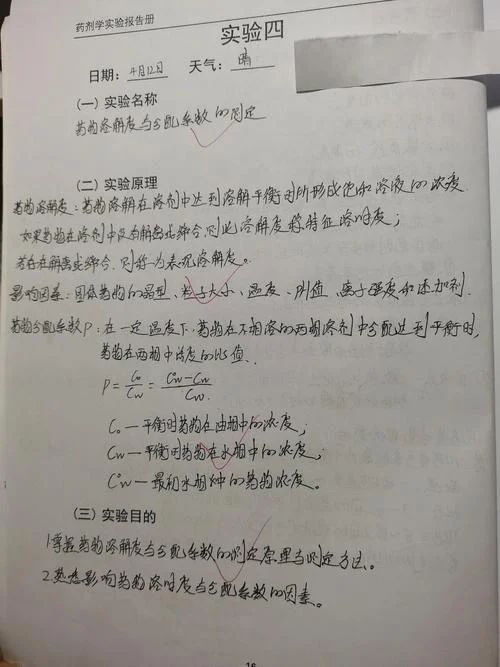 药剂学实验报告册
实验四
日期：4月12日 天气：晴
(一) 实验名称
药物溶解度与分配系数的测定
(二) 实验原理
药物溶解度：药物溶解在溶剂中达到溶解平衡时所形成饱和溶液的浓度.
如果药物在溶剂中没有解离或缔合,则此溶解度称特征溶解度；
若存在解离或缔合,则称为表观溶解度。
影响因素：固体药物的晶型、粒子大小、温度、pH值、离子强度和添加剂.
药物分配系数P：在一定温度下,药物在不相溶的两相溶剂中分配达到平衡时,
药物在两相中浓度的比值.
P = Co/Cw = (C°w-Cw)/Cw
Co—平衡时药物在油相中的浓度；
Cw—平衡时药物在水相中的浓度；
C°w—最初水相中的药物浓度。
(三) 实验目的
1.掌握药物溶解度与分配系数的测定原理与测定方法。
2.熟悉影响药物溶解度与分配系数的因素。
16